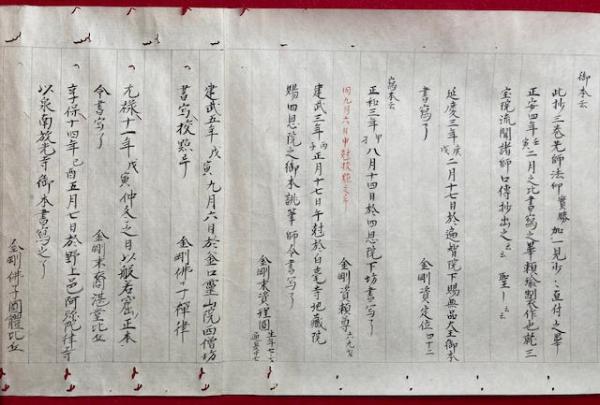 御本云
此抄三卷先師法印實勝加一見少〻直付之畢
正安四年壬寅二月之比書寫之畢頼瑜製作也能三
宝院流聞諸師口傳抄出之云云 聖〡云云
延慶三年庚戌二月十七日於遍智院下賜無品大王御本
書寫了 金剛資定位四十二
寫本云
正和三年甲八月十四日於四恩院下坊書寫了
金剛資頼尊六九
同九月六日申尅校點之了
建武三年丙子正月十七日午尅於白毫寺地藏院
賜四恩院之御本誂筆師令書寫了
金剛末資理圓
建武五年戊寅九月六日於金口靈山院四僧坊
書寫校點了 金剛佛子禪律
元禄十一年戊寅仲冬之日以般若窟正本
令書寫了 金剛末裔湛堂比丘
享保十四年己酉五月七日於野上邑阿弥陀律寺
以泉南放光寺御本書寫之了
金剛佛子圓體比丘